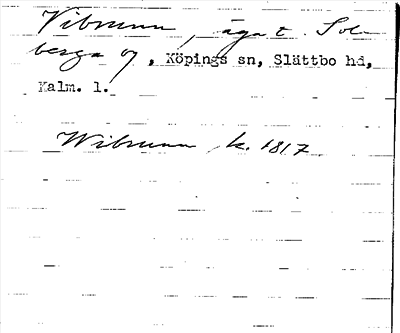 Vibrunn, äga t. Sol-
berga by, Köpings sn, Slättbo hd,
Kalm. l.
Wibrunn k. 1817